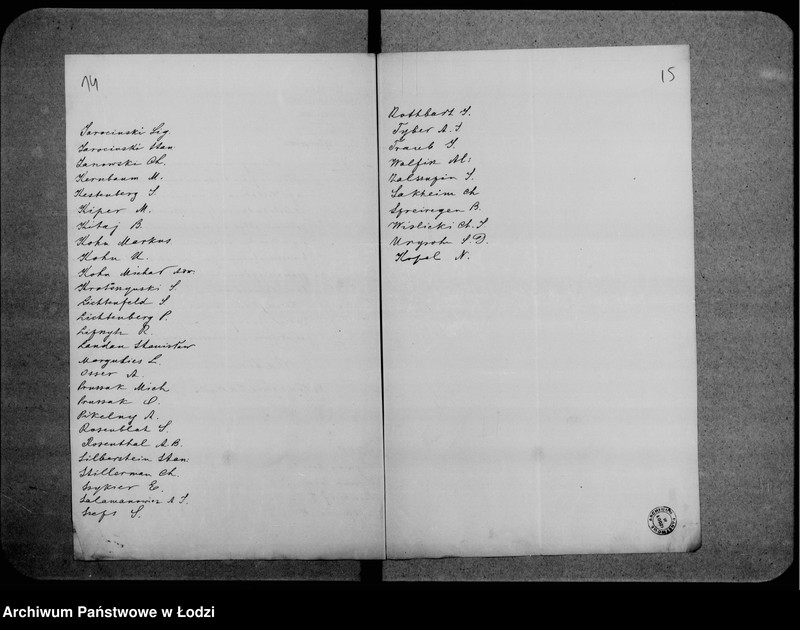 14
Jarociński Zyg.
Jarociński Stan
Janowski Ch.
Kernbaum M.
Kestenberg S
Kiper M.
Kitaj B.
Kohn Markus
Kohn
Kohn Michał
Krotoszyński S.
Lichtenfeld S
Lichtenberg P.
R.
Landau Stanisław
Margulies L.
Osser A.
Prussak Mich
Prussak
Pikelny A.
Rosenblat S
Rosenthal A. B.
Silberstein Stan:
Stillerman Ch.
Szykier E.
Salamanowicz A S.
S.
15
Rothbart S.
Tyber A. S
Traub S.
Wulfin M:
S.
Sakheim Ch
Szreiregen B.
Wiślicki Ch. S
S. D.
Kopel N.
Archiwum Państwowe w Łodzi